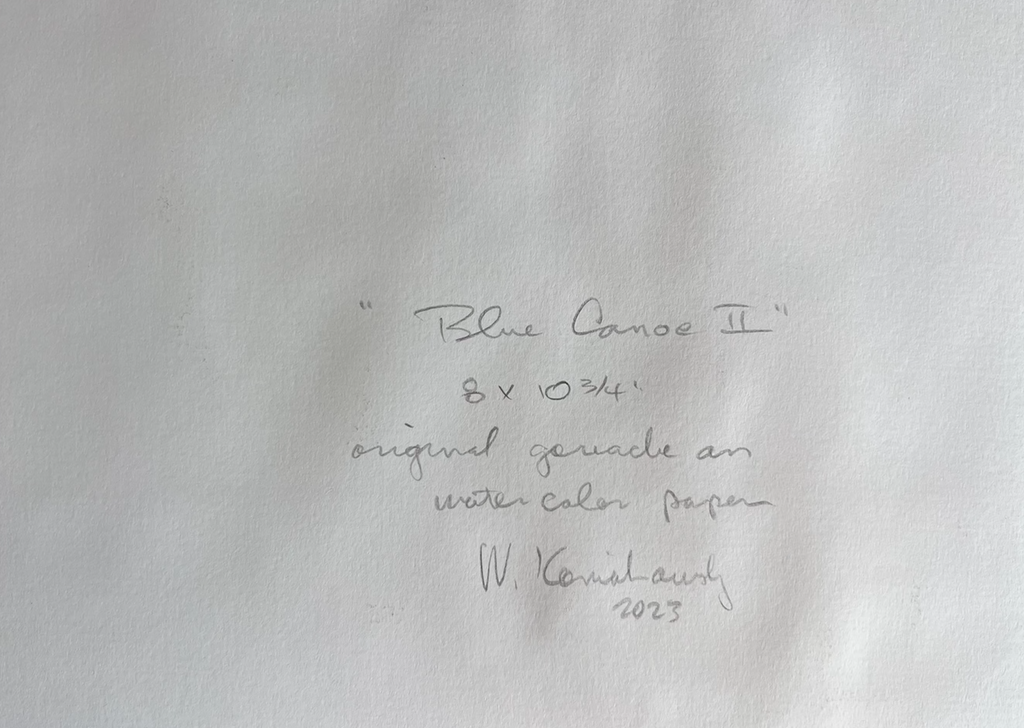 "Blue Canoe II"
8 x 10 3/4"
original gouache on
watercolor paper
W.
2023